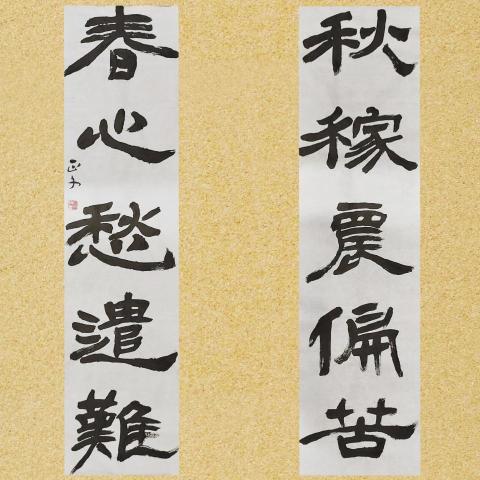 秋稼農偏苦
春心愁遣難